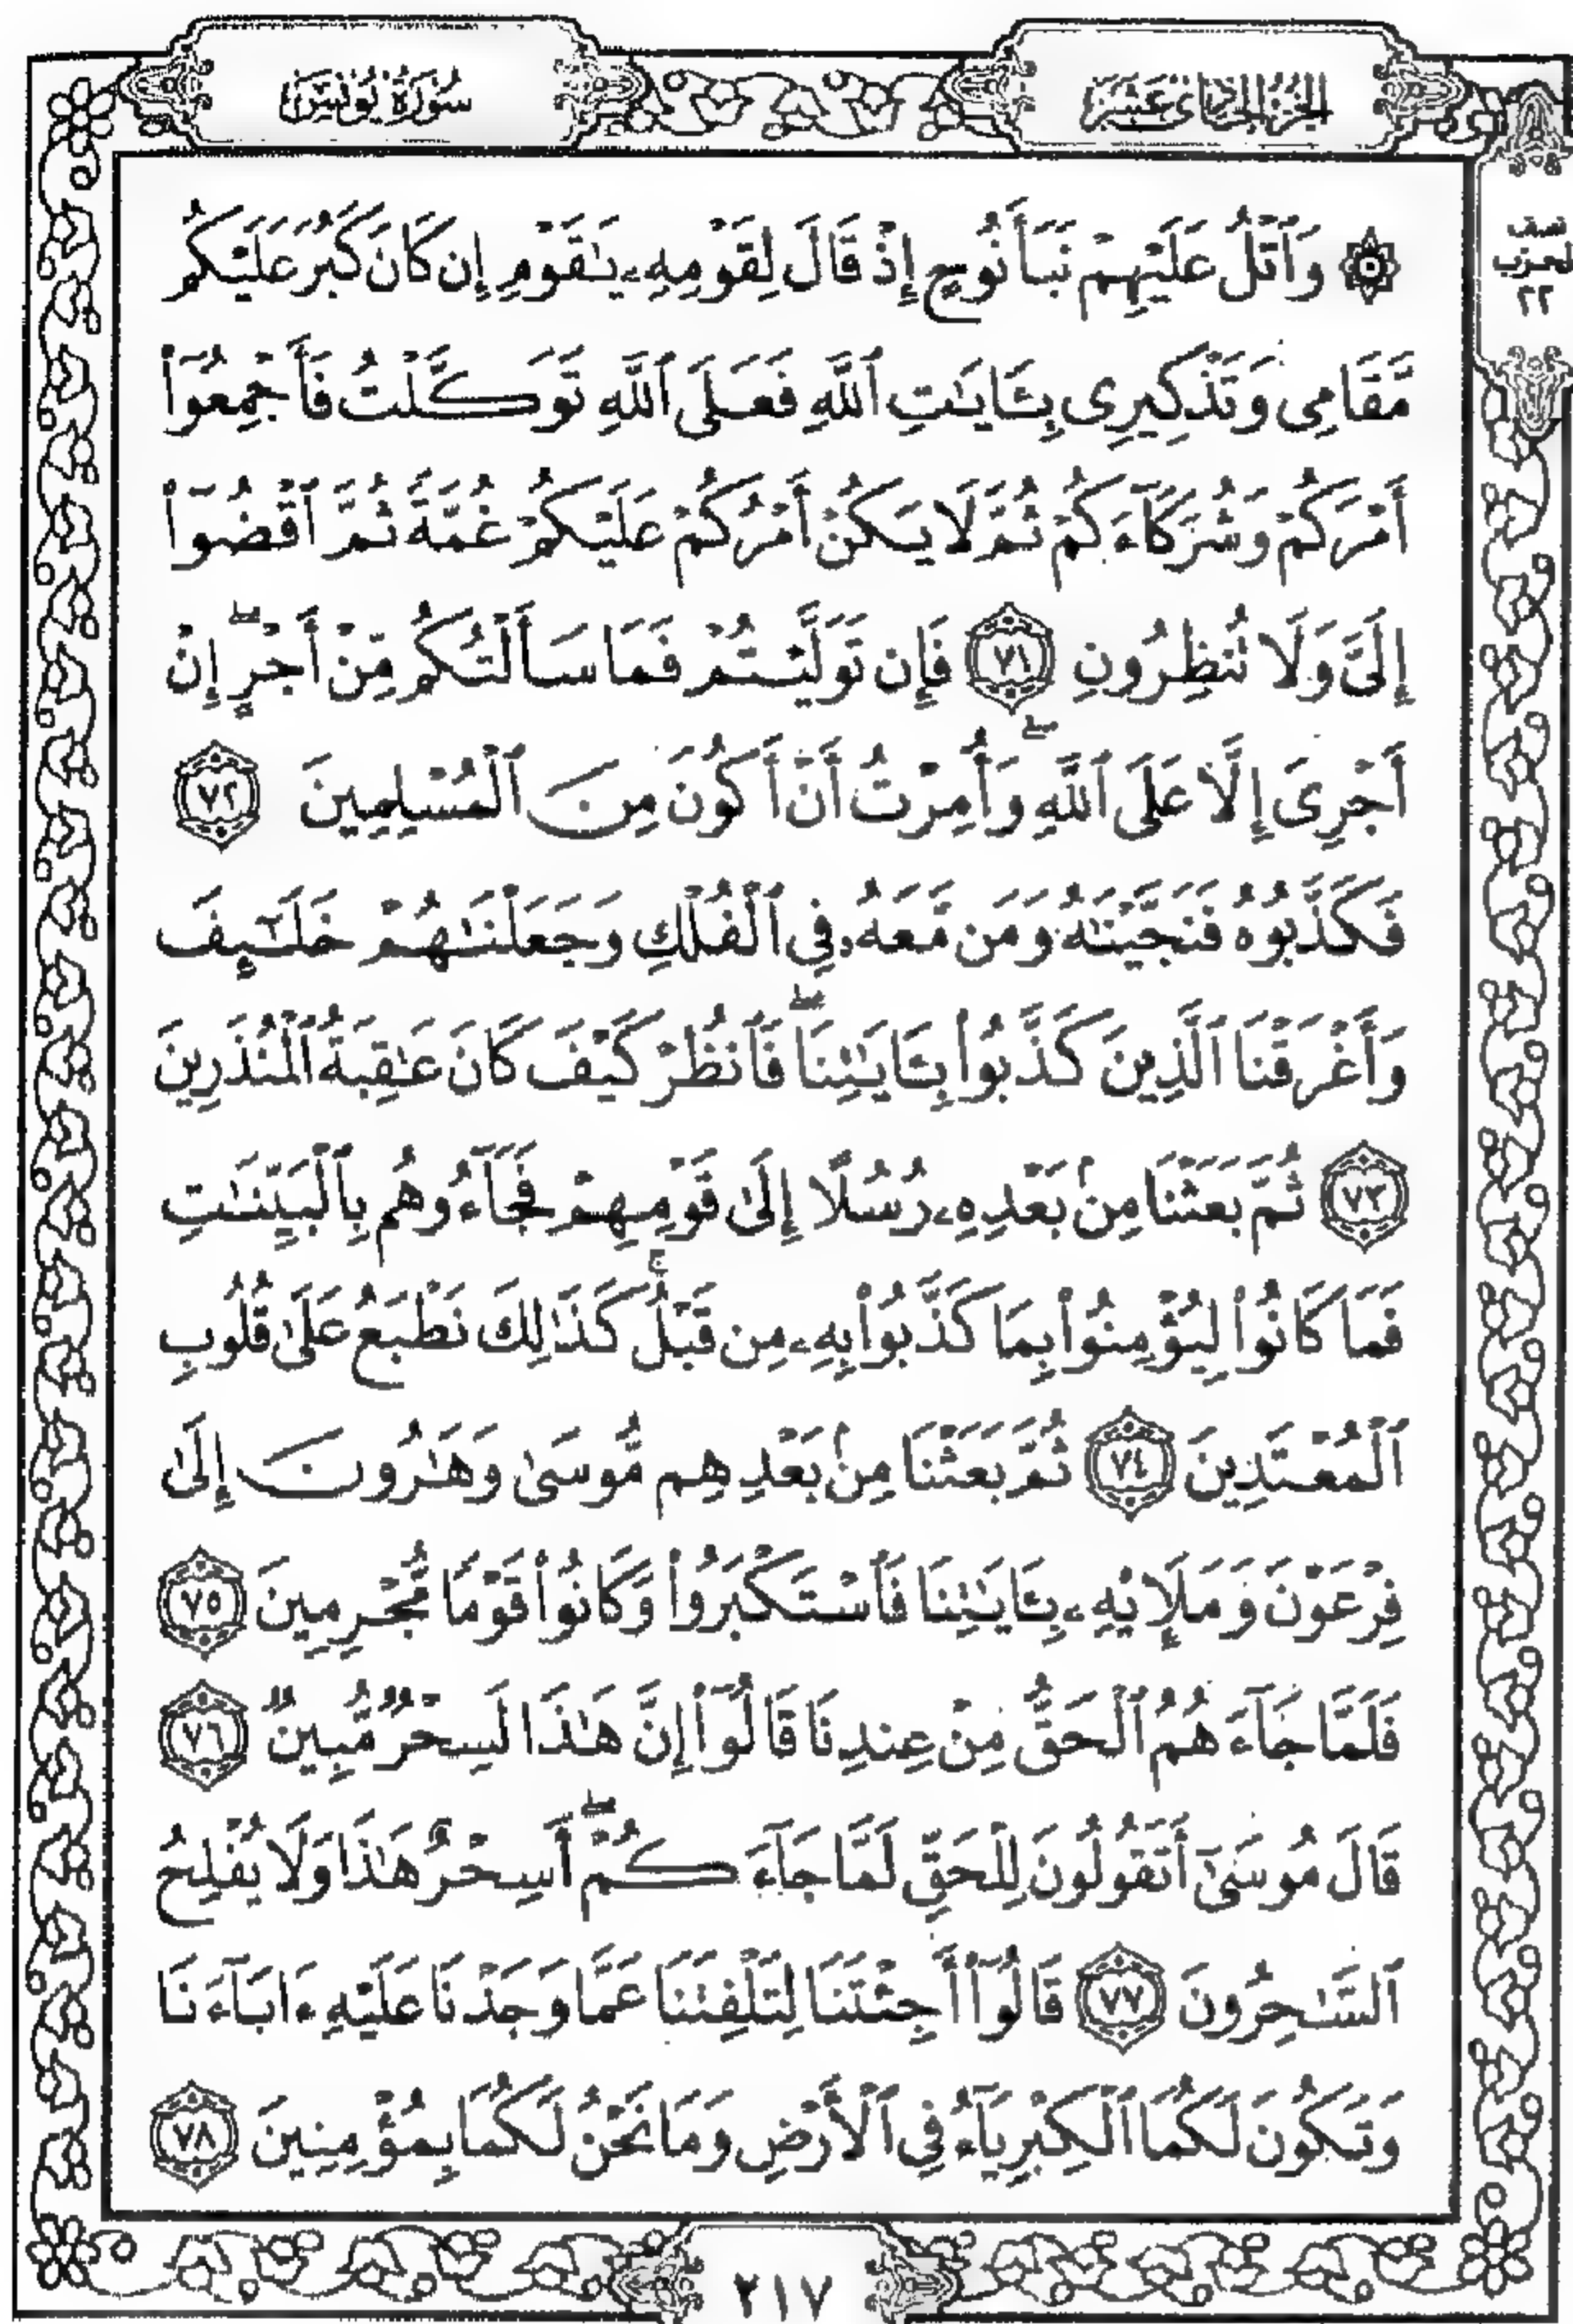 سُورَةُ يُونُسَ
الجُزْءُ الحَادِي عَشَرَ
نصف
الحزب
٢٢
۞ وَٱتْلُ عَلَيْهِمْ نَبَأَ نُوحٍ إِذْ قَالَ لِقَوْمِهِۦ يَـٰقَوْمِ إِن كَانَ كَبُرَ عَلَيْكُم
مَّقَامِى وَتَذْكِيرِى بِـَٔايَـٰتِ ٱللَّهِ فَعَلَى ٱللَّهِ تَوَكَّلْتُ فَأَجْمِعُوٓا۟
أَمْرَكُمْ وَشُرَكَآءَكُمْ ثُمَّ لَا يَكُنْ أَمْرُكُمْ عَلَيْكُمْ غُمَّةً ثُمَّ ٱقْضُوٓا۟
إِلَىَّ وَلَا تُنظِرُونِ ٧١ فَإِن تَوَلَّيْتُمْ فَمَا سَأَلْتُكُم مِّنْ أَجْرٍ ۖ إِنْ
أَجْرِىَ إِلَّا عَلَى ٱللَّهِ ۖ وَأُمِرْتُ أَنْ أَكُونَ مِنَ ٱلْمُسْلِمِينَ ٧٢
فَكَذَّبُوهُ فَنَجَّيْنَـٰهُ وَمَن مَّعَهُۥ فِى ٱلْفُلْكِ وَجَعَلْنَـٰهُمْ خَلَـٰٓئِفَ
وَأَغْرَقْنَا ٱلَّذِينَ كَذَّبُوا۟ بِـَٔايَـٰتِنَا ۖ فَٱنظُرْ كَيْفَ كَانَ عَـٰقِبَةُ ٱلْمُنذَرِينَ
٧٣ ثُمَّ بَعَثْنَا مِنۢ بَعْدِهِۦ رُسُلًا إِلَىٰ قَوْمِهِمْ فَجَآءُوهُم بِٱلْبَيِّنَـٰتِ
فَمَا كَانُوا۟ لِيُؤْمِنُوا۟ بِمَا كَذَّبُوا۟ بِهِۦ مِن قَبْلُ ۚ كَذَٰلِكَ نَطْبَعُ عَلَىٰ قُلُوبِ
ٱلْمُعْتَدِينَ ٧٤ ثُمَّ بَعَثْنَا مِنۢ بَعْدِهِم مُّوسَىٰ وَهَـٰرُونَ إِلَىٰ
فِرْعَوْنَ وَمَلَإِي۟هِۦ بِـَٔايَـٰتِنَا فَٱسْتَكْبَرُوا۟ وَكَانُوا۟ قَوْمًا مُّجْرِمِينَ ٧٥
فَلَمَّا جَآءَهُمُ ٱلْحَقُّ مِنْ عِندِنَا قَالُوٓا۟ إِنَّ هَـٰذَا لَسِحْرٌ مُّبِينٌ ٧٦
قَالَ مُوسَىٰٓ أَتَقُولُونَ لِلْحَقِّ لَمَّا جَآءَكُمْ ۖ أَسِحْرٌ هَـٰذَا وَلَا يُفْلِحُ
ٱلسَّـٰحِرُونَ ٧٧ قَالُوٓا۟ أَجِئْتَنَا لِتَلْفِتَنَا عَمَّا وَجَدْنَا عَلَيْهِ ءَابَآءَنَا
وَتَكُونَ لَكُمَا ٱلْكِبْرِيَآءُ فِى ٱلْأَرْضِ وَمَا نَحْنُ لَكُمَا بِمُؤْمِنِينَ ٧٨
٢١٧